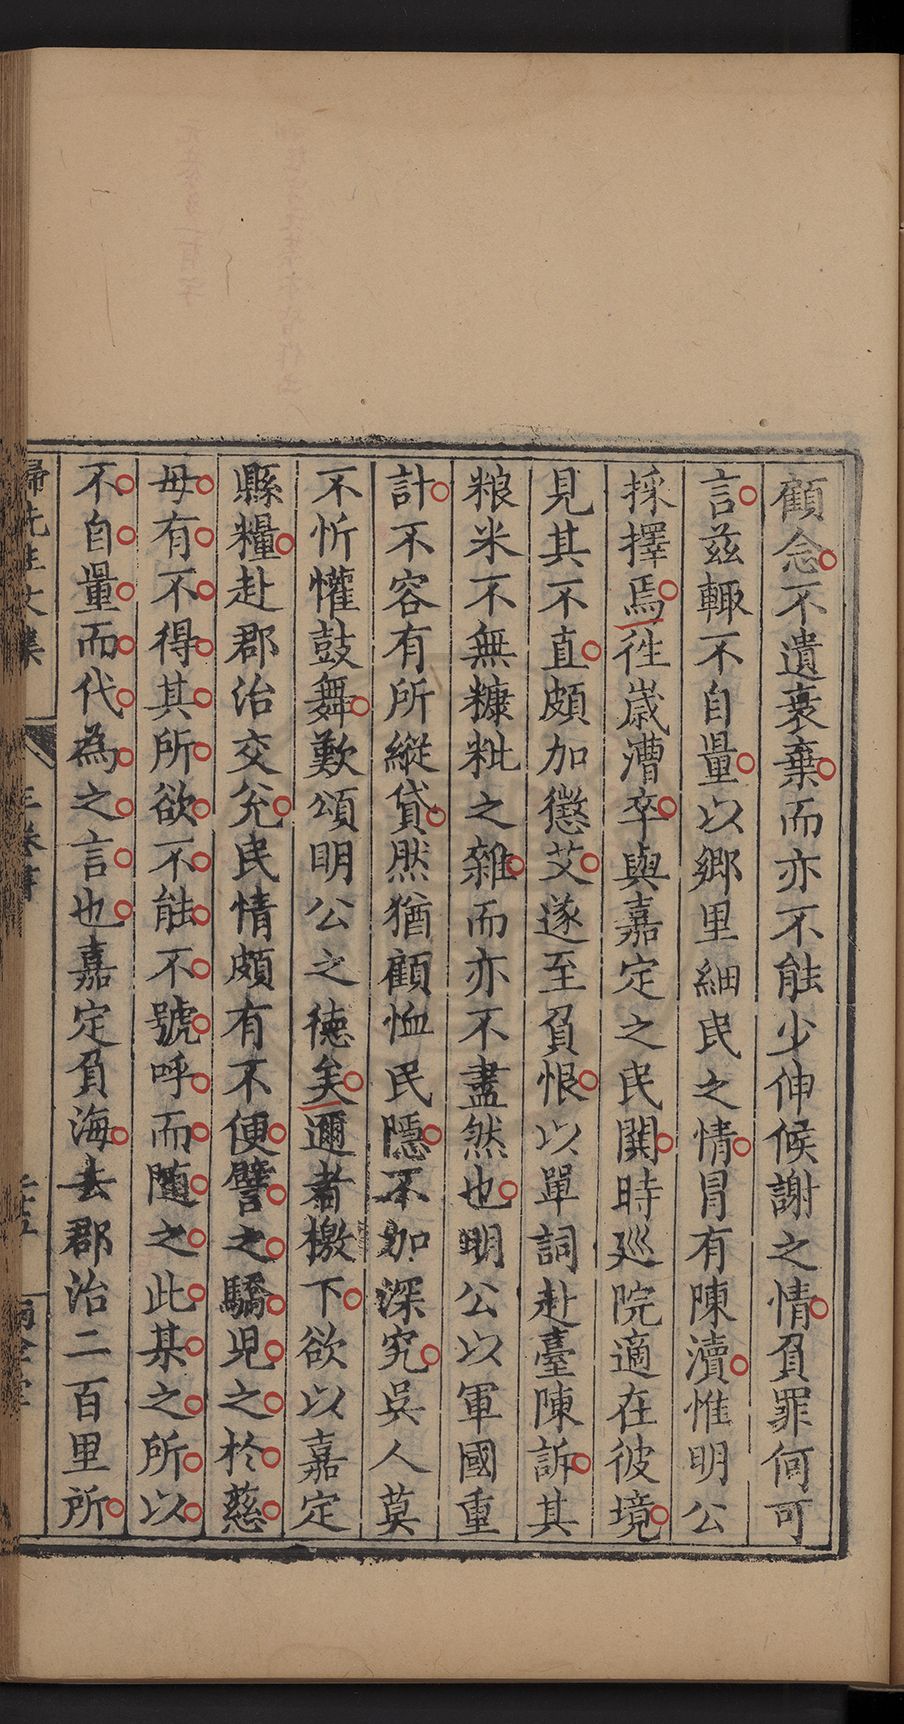 顧念不遺衰棄而亦不能少伸候謝之情負罪何可
言兹輙不自量以鄉里細民之情冒有陳瀆惟明公
採擇焉徃歲漕卒與嘉定之民鬨時廵院適在彼境
見其不直頗加懲艾遂至負恨以單詞赴臺陳訴其
粮米不無糠粃之雜而亦不盡然也明公以軍國重
計不容有所縱貸然猶顧恤民隱不加深究吳人莫
不忻懽鼓舞歎頌明公之德矣邇者檄下欲以嘉定
縣糧赴郡治交兊民情頗有不便譬之驕児之於慈
母有不得其所欲不能不號呼而随之此某之所以
不自量而代為之言也嘉定負海去郡治二百里所
歸先生文集
三卷書